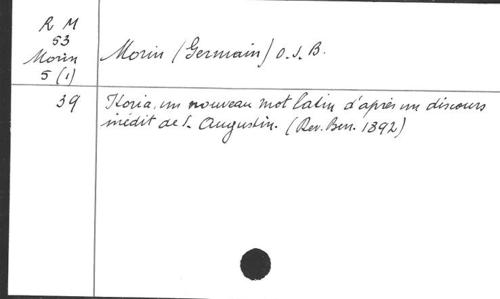 R M
53
Morin
5 (1)
Morin (Germain) O.S.B.
39
Itoria, un nouveau mot latin d'après un discours
inédit de S. Augustin. (Rev. Ben. 1892)